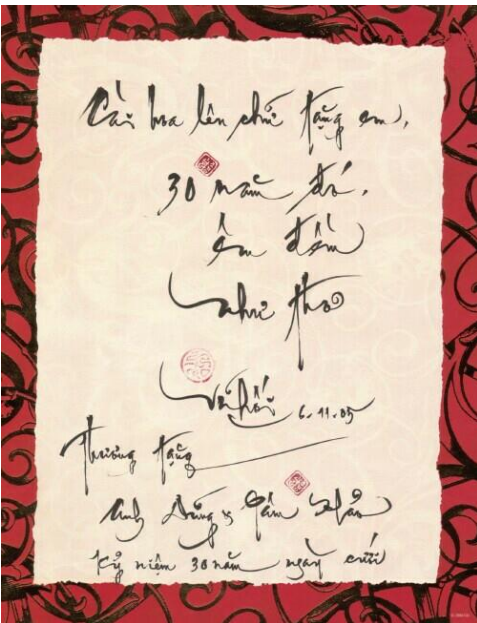 Cài hoa lên chữ tặng em,
30 năm đó.
êm đềm
như thơ
6.11.05
Thương tặng
Anh Dũng & Tâm Thảo
Kỷ niệm 30 năm ngày cưới